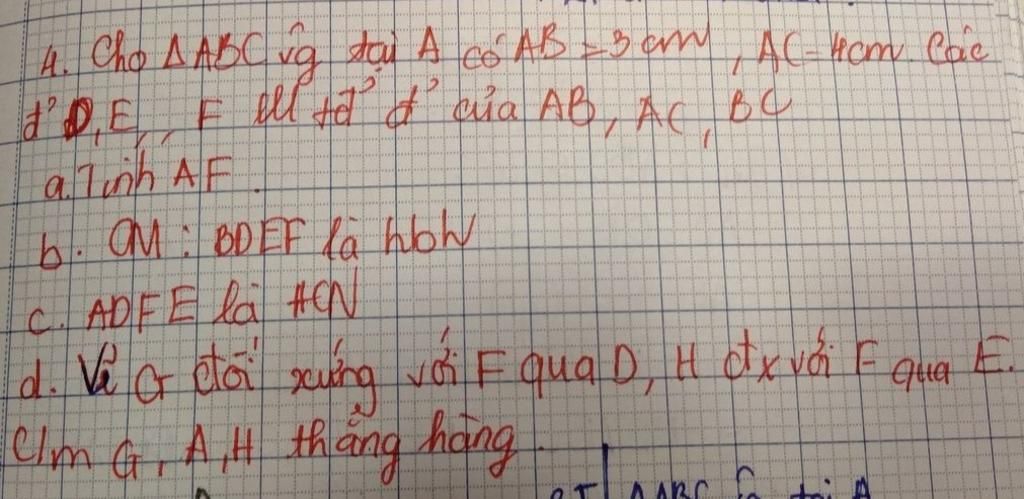 4. Cho ΔABC vg tại A có AB = 3 cm, AC = 4cm. Các
đ' D, E, F lll tđ' đ' của AB, AC, BC
a. Tính AF.
b. CM : BDEF là hbh
c. ADFE là HCN
d. Vẽ G đối xứng với F qua D, H đx với F qua E.
C/m G, A, H thẳng hàng.
ΔABC